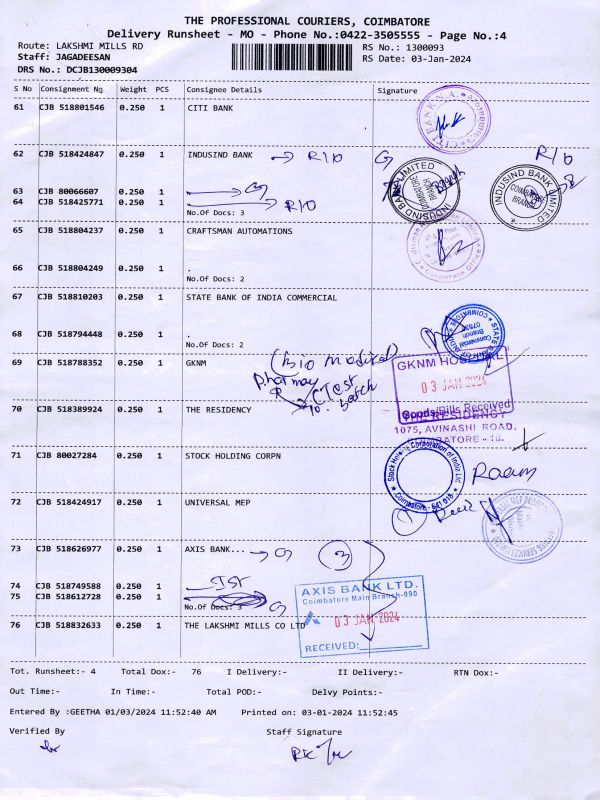 THE PROFESSIONAL COURIERS, COIMBATORE
Delivery Runsheet - MO - Phone No.:0422-3505555 - Page No.:4
Route: LAKSHMI MILLS RD RS No.: 1300093
Staff: JAGADEESAN RS Date: 03-Jan-2024
DRS No.: DCJB130009304
S No Consignment No Weight PCS Consignee Details Signature
61 CJB 518801546 0.250 1 CITI BANK
62 CJB 518424847 0.250 1 INDUSIND BANK → R/O R/O
INDUSIND BANK LIMITED COIMBATORE BRANCH
INDUSIND BANK LIMITED COIMBATORE BRANCH
63 CJB 80066607 0.250 1
64 CJB 518425771 0.250 1 R/O
No.Of Docs: 3
65 CJB 518804237 0.250 1 CRAFTSMAN AUTOMATIONS
66 CJB 518804249 0.250 1 .
No.Of Docs: 2
67 CJB 518810203 0.250 1 STATE BANK OF INDIA COMMERCIAL
68 CJB 518794448 0.250 1 .
No.Of Docs: 2
69 CJB 518788352 0.250 1 GKNM (Bio medical)
GKNM HOSPITAL
03 JAN 2024
Goods/Bills Received
70 CJB 518389924 0.250 1 THE RESIDENCY
THE RESIDENCY
1075, AVINASHI ROAD,
COIMBATORE - 18.
71 CJB 80027284 0.250 1 STOCK HOLDING CORPN
Stock Holding Corporation of India Ltd. Coimbatore - 641 018
72 CJB 518424917 0.250 1 UNIVERSAL MEP
73 CJB 518626977 0.250 1 AXIS BANK... → 3
74 CJB 518749588 0.250 1
75 CJB 518612728 0.250 1
No.Of Docs: 3
AXIS BANK LTD.
Coimbatore Main Branch-090
03 JAN 2024
RECEIVED:
76 CJB 518832633 0.250 1 THE LAKSHMI MILLS CO LTD
Tot. Runsheet:- 4 Total Dox:- 76 I Delivery:- II Delivery:- RTN Dox:-
Out Time:- In Time:- Total POD:- Delvy Points:-
Entered By :GEETHA 01/03/2024 11:52:40 AM Printed on: 03-01-2024 11:52:45
Verified By Staff Signature